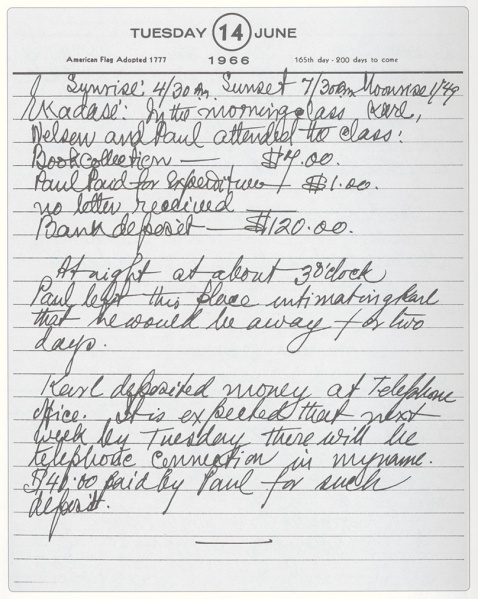 TUESDAY 14 JUNE
American Flag Adopted 1777 1966 165th day - 200 days to come
Sunrise: 4/30 am Sunset 7/30 am Moonrise 1/49
Ekadasi: In the morning class Karl,
Nelsen and Paul attended the class:
Book collection — $4.00.
Paul Paid for expenditure / $1.00.
no letter received
Bank deposit — $120.00.
At night at about 3 O'clock
Paul left this place intimating Karl
that he would be away for two
days.
Karl deposited money at Telephone
office. It is expected that next
week by Tuesday there will be
telephone connection in my name.
$40.00 paid by Paul for such
deposit.